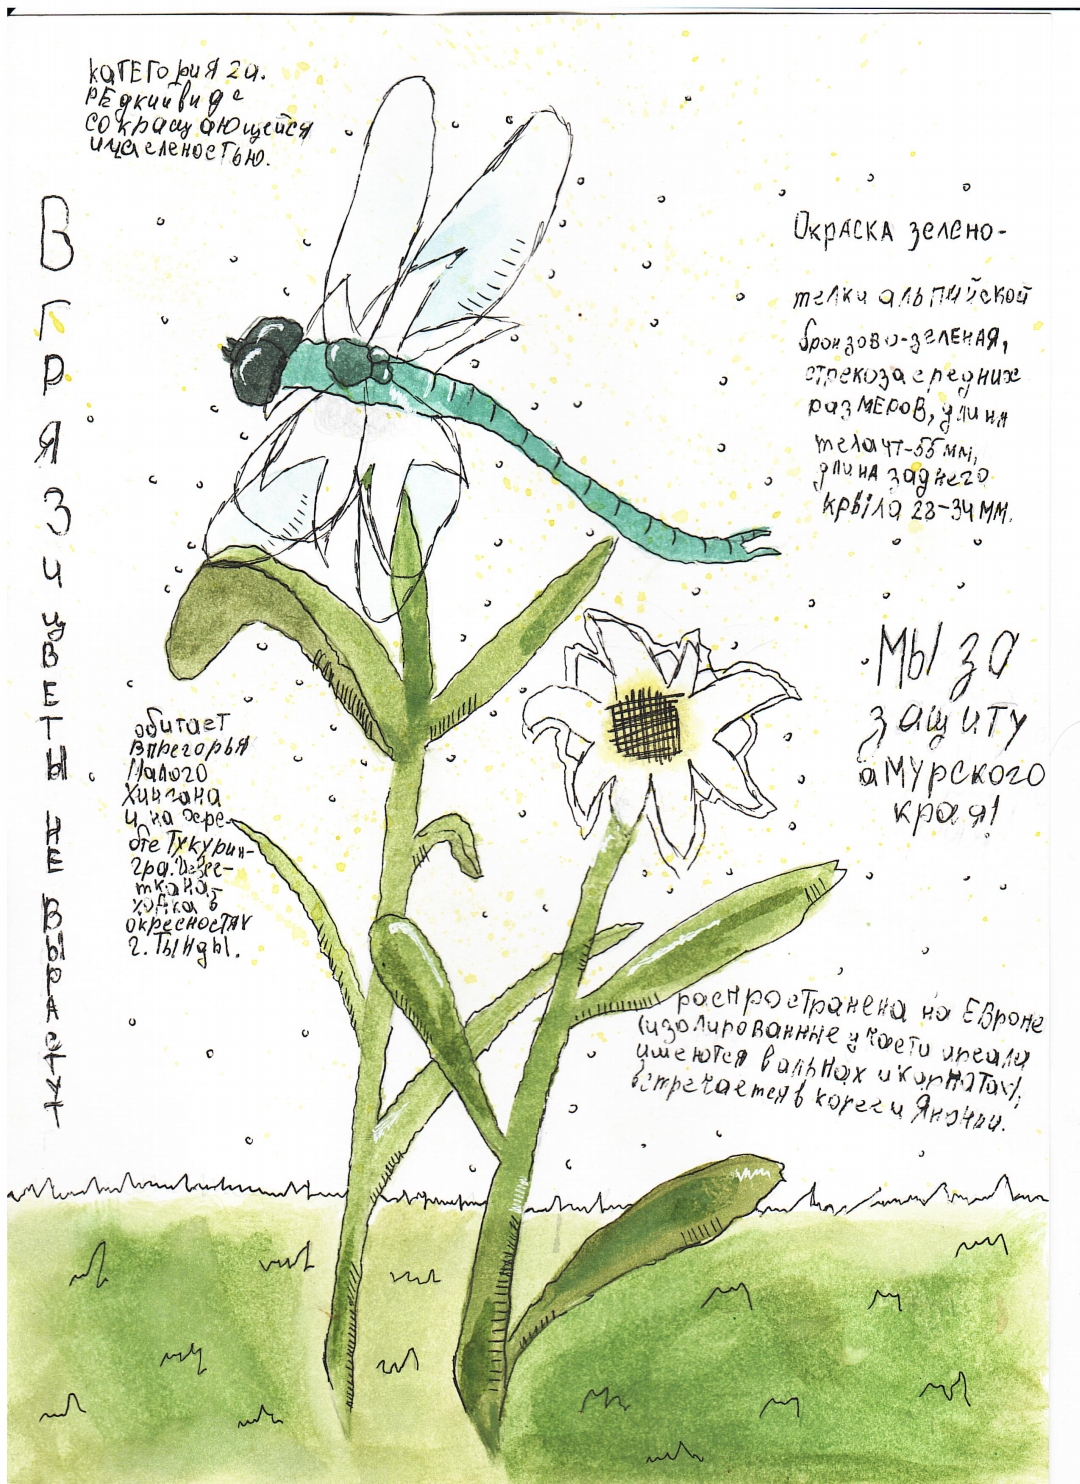 Категория 2а.
Редкий вид с
сокращающейся
ичаеленостью.
В грязи цветы не вырастут
Окраска зелено-
телки альпийской
бронзово-зеленая,
стрекоза средних
размеров, длина
тела 47-55 мм,
длина заднего
крыла 28-34 мм.
Мы за
защиту
амурского
края!
обитает
в прегорья
Малого
Хингана
и на хре-
бте Тукурин-
гра. Извес-
тна на-
ходка в
окресностях
г. Тынды.
распространена на Европе
(изолированные участи ареала
имеются в альпах и карпатах),
встречается в корее и Японии.